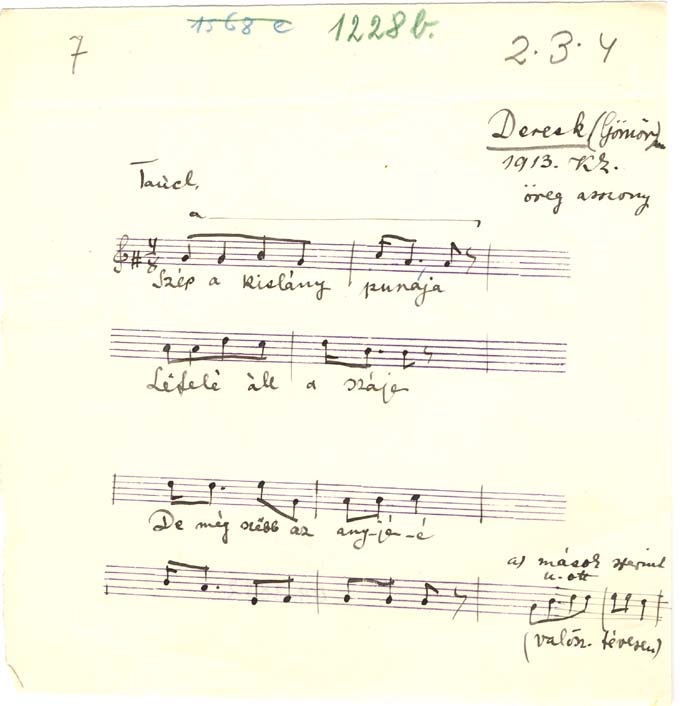 7 1568 c 1228 b. 2·3·4
Deresk (Gömör)
1913. KZ.
öreg asszony
Táncd.
a
4/8
Szép a kislány punája
Lëfelé áll a szája
De még szëbb az any-jé-é
a) mások szerint
u. ott
(valósz. tévesen)